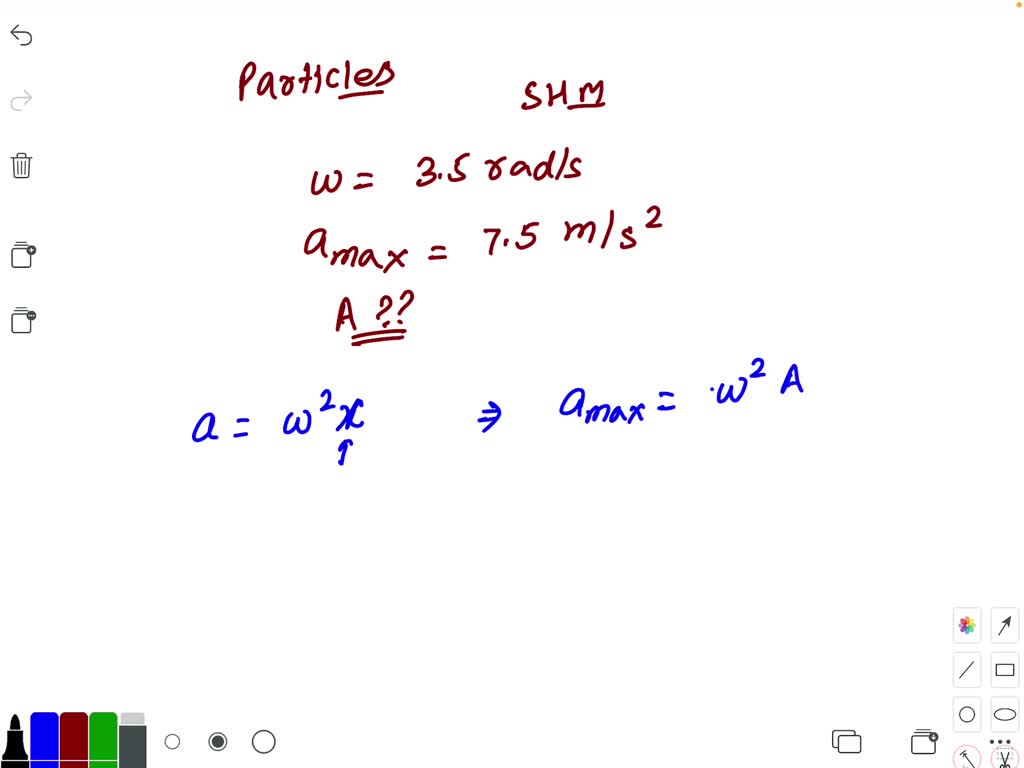 Particles SHM
ω = 3.5 rad/s
a max = 7.5 m/s²
A ??
a = ω²x ⇒ a max = ω² A